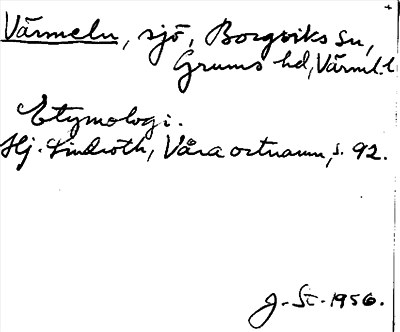 Värmeln, sjö, Borgviks sn,
Grums hd, Värml. l
Etymologi.
Hj. Lindroth, Våra ortnamn, s. 92.
J. St. 1956.